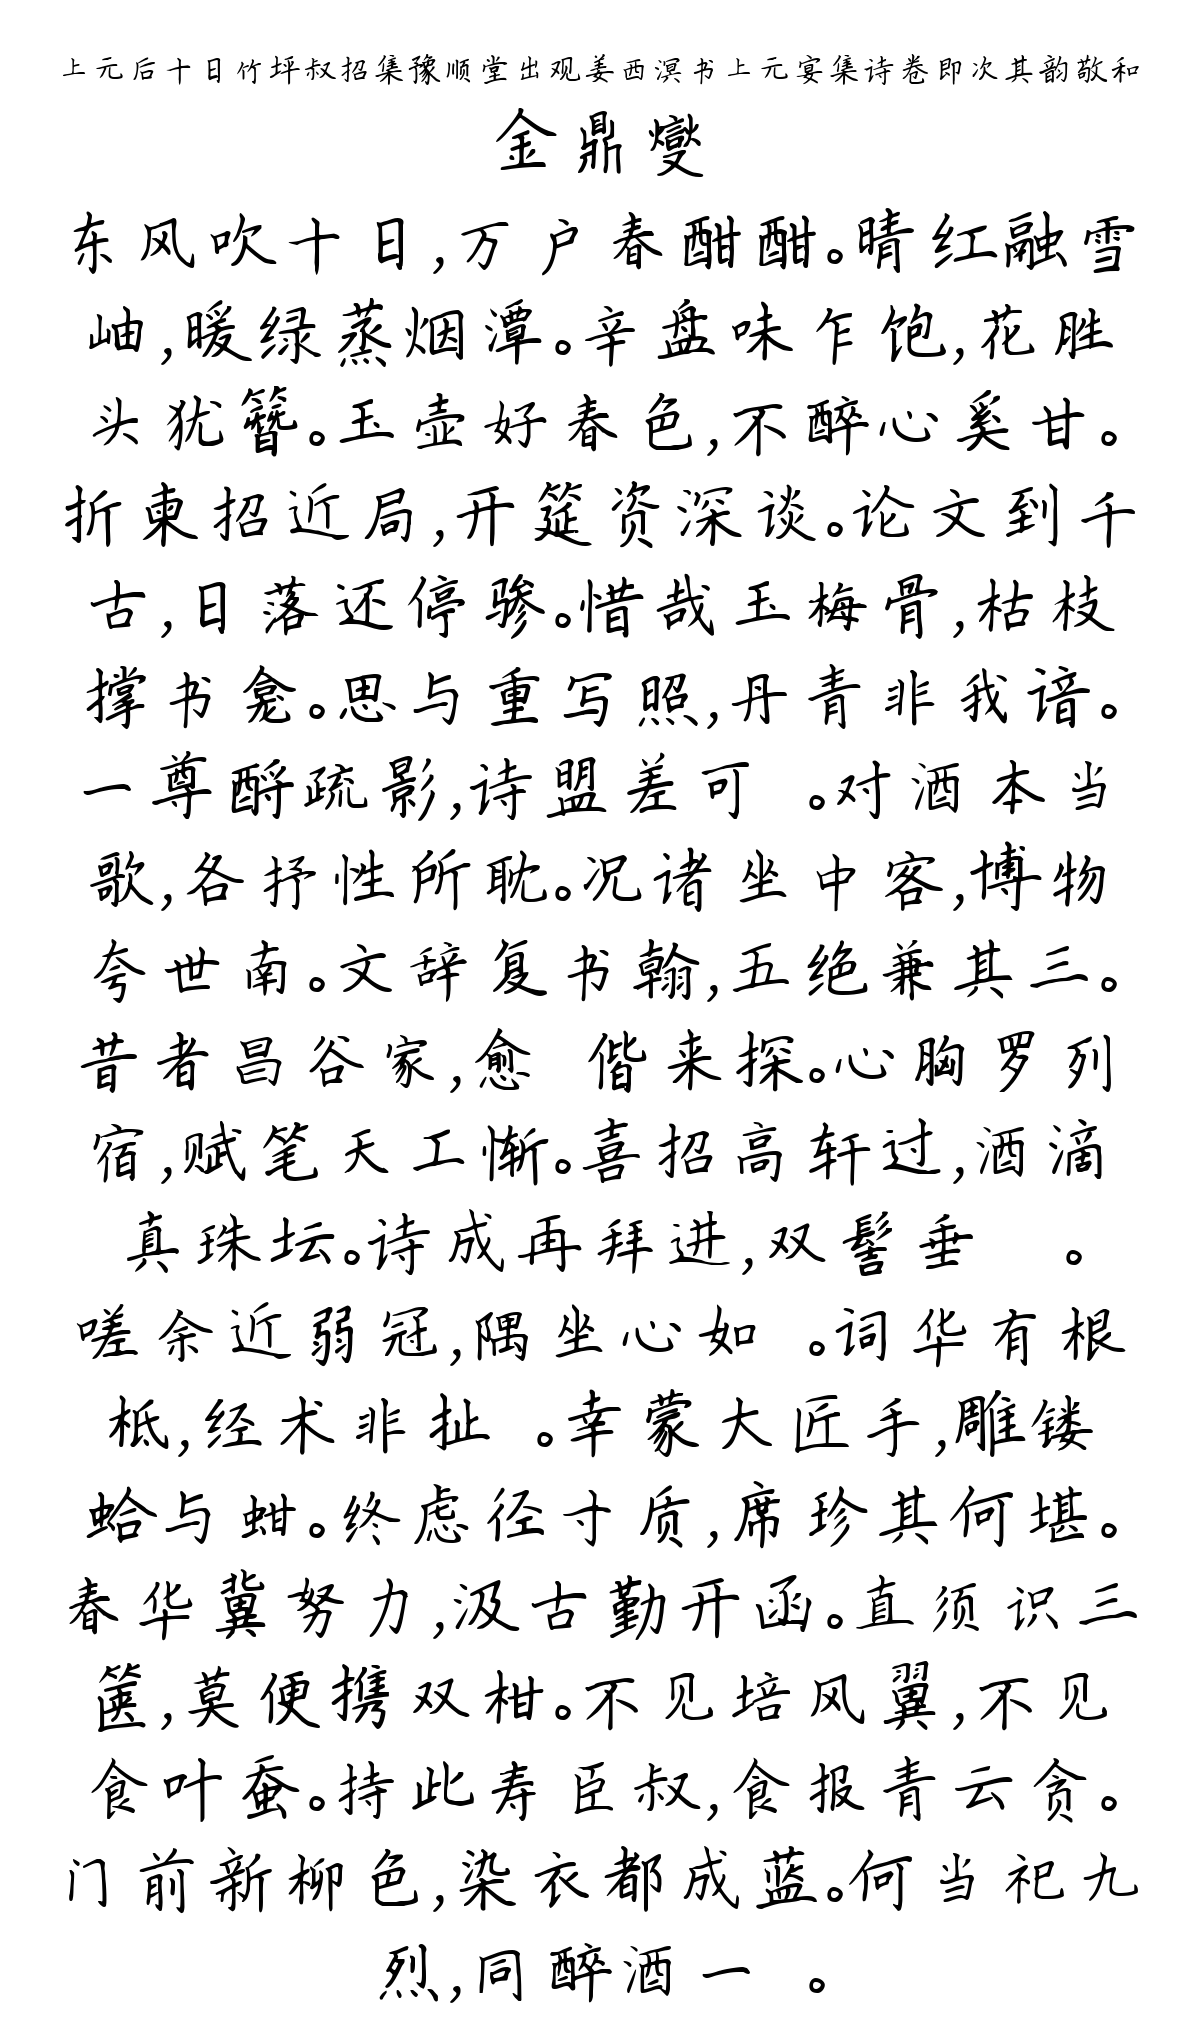 上元后十日竹坪叔招集豫顺堂出观姜西溟书上元宴集诗卷即次其韵敬和
金鼎燮
东风吹十日,万户春酣酣。晴红融雪
岫,暖绿蒸烟潭。辛盘味乍饱,花胜
头犹簪。玉壶好春色,不醉心奚甘。
折柬招近局,开筵资深谈。论文到千
古,日落还停骖。惜哉玉梅骨,枯枝
撑书龛。思与重写照,丹青非我谙。
一尊酹疏影,诗盟差可 。对酒本当
歌,各抒性所耽。况诸坐中客,博物
夸世南。文辞复书翰,五绝兼其三。
昔者昌谷家,愈 偕来探。心胸罗列
宿,赋笔天工惭。喜招高轩过,酒滴
真珠坛。诗成再拜进,双髻垂 。
嗟余近弱冠,隅坐心如 。词华有根
柢,经术非扯 。幸蒙大匠手,雕镂
蛤与蚶。终虑径寸质,席珍其何堪。
春华冀努力,汲古勤开函。直须识三
箧,莫便携双柑。不见培风翼,不见
食叶蚕。持此寿臣叔,食报青云贪。
门前新柳色,染衣都成蓝。何当祀九
烈,同醉酒一 。